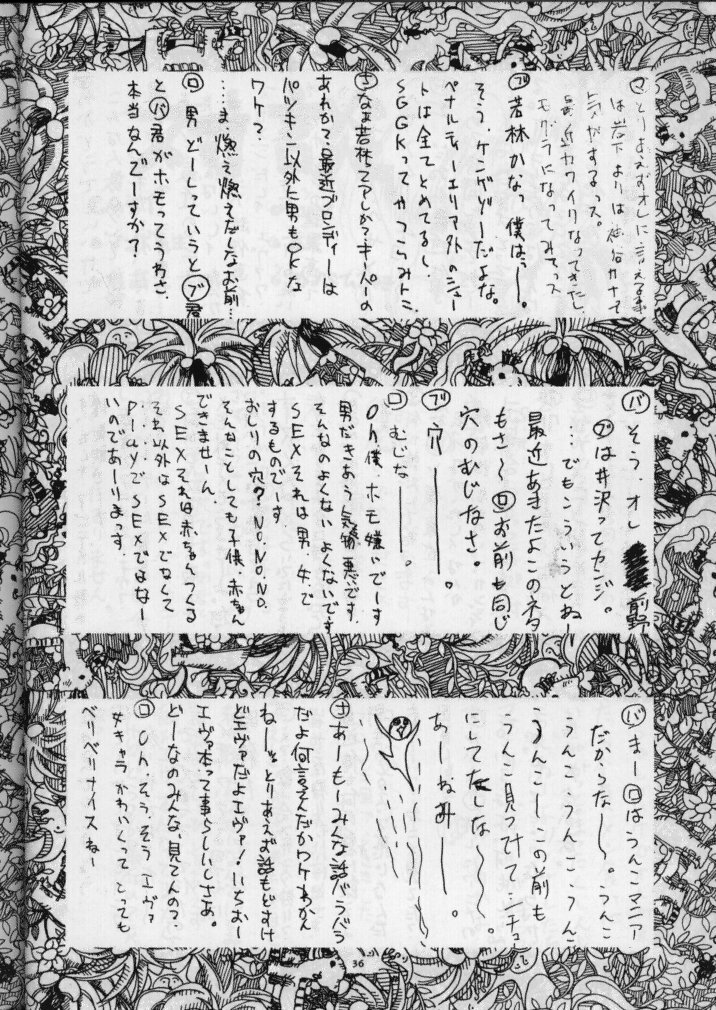 マとりあえずオレに言える事
は岩下よりは
気がするっス。
最近カワイクなってきたし
モグラになってみてっス
ブ若林かなっ僕はっー。
そう、ケンゲゾーだよな。
ペナルティーエリア外のシュー
トは全てとめてるし、
SGGKってやつらみトニ
なぁ若林ってアレか?キーパーの
あれか?、最近ブロンディーは
パツキン以外に男もOKな
ワケ?
…ま、燃え燃えだしなお前…
ロ男どーしっていうとブ君
とバ君がホモってうわさ、
本当なんでーすか?
バそう、オレ 前野
ブは井沢ってカンジ。
…でもこういうとねー
最近あきたよこのネタ
もさ〜ロお前も同じ
穴のむじなさ。
ブ穴ー。
ロむじなー。
Oh僕、ホモ嫌いでーす
男だきあう気物悪です。
そんなのよくないよくないです
SEXそれは男、女で
するものでーす
おしりの穴?NO.NO.NO.
そんなことしても子供、赤ちゃん
できませーん。
SEXそれは赤ちゃんつくる
それ以外はSEXでなくして
……PlayでSEXではなー
いのであーりまっす。
バまーロはうんこマニア
だからなー〜。うんこ
うんこうんこうんこ
うんこーこの前も
うんこ見ててセンチュ
にしてたしな〜〜。
あーねみー。
ナあーもーみんな話バラバラ
だよ何言ってんだかワケわかん
ねーっとりあえず話もどすけ
どエヴァだよエヴァ!いちおー
エヴァ本って事らしいしさあ。
どーなのみんな、見てんの?
ロOh.そう、そうエヴァ
女キャラかわいくってとっても
ベリベリナイスねー
36